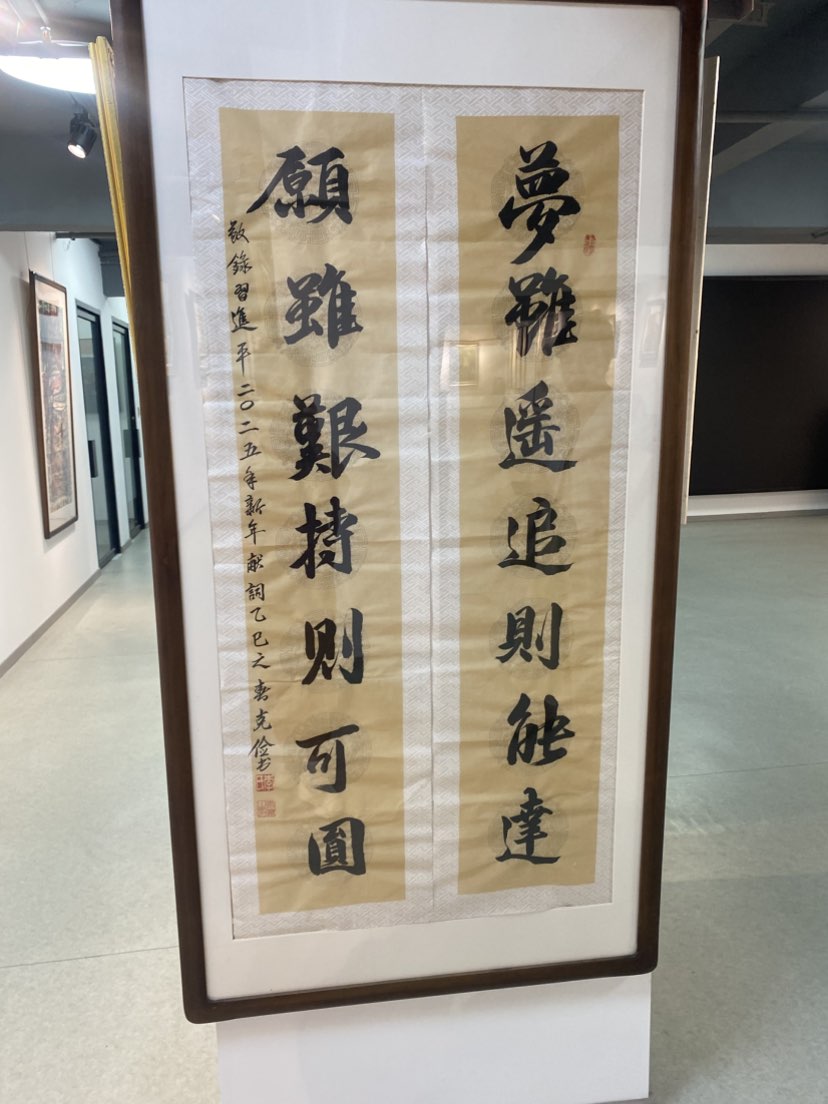 夢雖遥追則能達
願雖艱持則可圓
敬錄習進平二〇二五年新年献詞乙巳之春克儉书